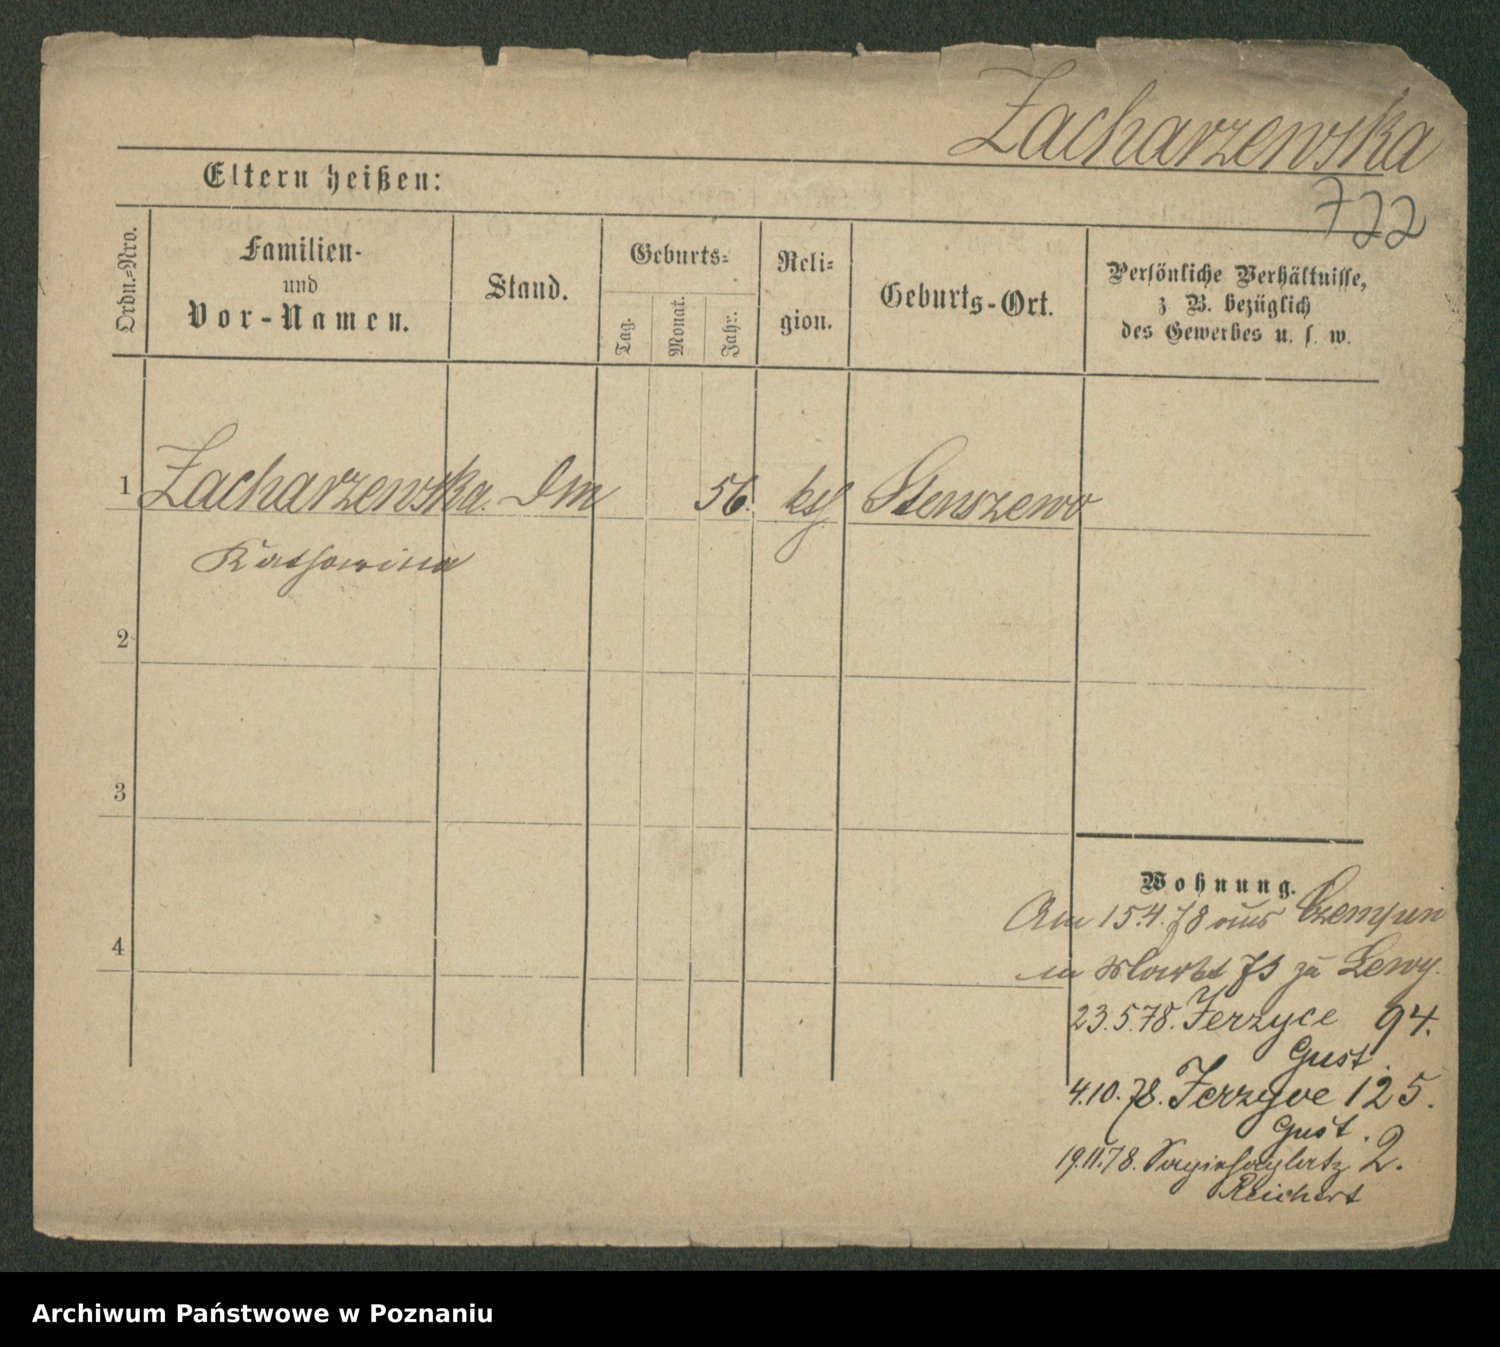 Zacharzewska
722
Eltern heißen:
Ordn.-Nro.
Familien-
und
Vor-Namen.
Stand.
Geburts-
Tag.
Monat.
Jahr.
Reli-
gion.
Geburts-Ort.
Persönliche Verhältnisse,
z B. bezüglich
des Gewerbes u. s. w.
1 Zacharzewska Dm 56. kth Stenszewo
Katharina
2
3
4
Wohnung.
Am 15.4.78 aus Czempin
Markt 75 zu Lewy.
23.5.78. Jerzyce 94.
Gust.
4.10.78. Jerzyce 125.
Gust.
19.11.78. Sapiehaplatz 2.
Reichert
Archiwum Państwowe w Poznaniu